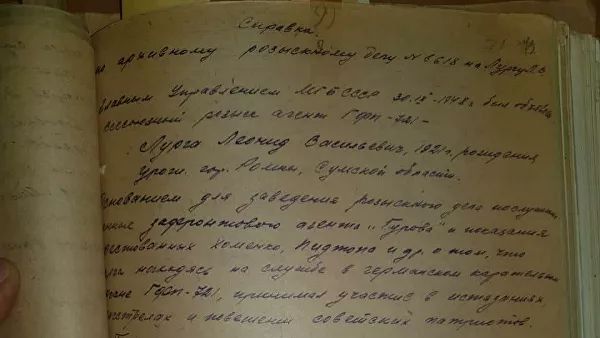 Справка
по архивному розыскному делу № 6618 на Лургу Л.В.
Главным Управлением МГБ СССР 20.IX-1948 г. был объявлен
всесоюзный розыск агента ГФП-721-
Лурга Леонид Васильевич, 1921 г. рождения
урож. гор. Ромны, Сумской области.
Основанием для заведения розыскного дела послужили
данные зафронтового агента "Гурова" и показания
арестованных Хоменко, и др. о том, что
находясь на службе в германском карательном
органе ГФП-721, принимал участие в истязаниях
расстрелах и повешении советских патриотов.